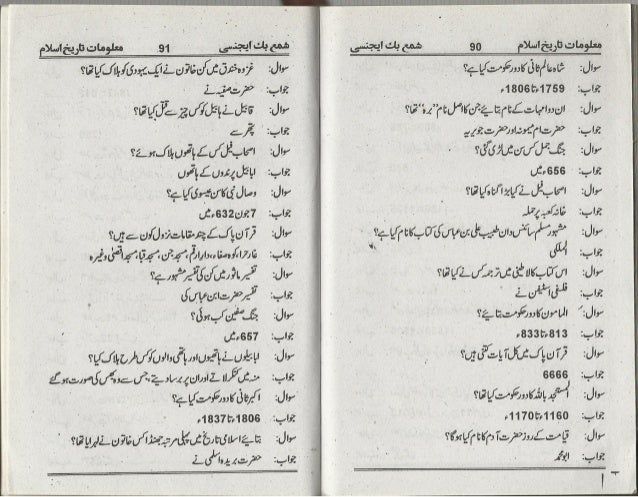 معلومات تاریخ اسلام 90 شمع بک ایجنسی
سوال: شاہ عالم ثانی کا دور حکومت کیا ہے؟
جواب: 1759ء تا 1806ء
سوال: ان دو امہات کے نام بتائیے جن کا اصل نام ”برہ“ تھا؟
جواب: حضرت ام میمونہ اور حضرت جویریہ
سوال: جنگ جمل کس سن میں لڑی گئی؟
جواب: 656ء میں
سوال: اصحاب فیل نے کیا بڑا گناہ کیا تھا؟
جواب: خانہ کعبہ پر حملہ
سوال: مشہور مسلم سائنس دان طبیب علی بن عباس کی کتاب کا نام کیا ہے؟
جواب: الملکی
سوال: اس کتاب کا لاطینی میں ترجمہ کس نے کیا تھا؟
جواب: فلسفی اسٹیفن نے
سوال: المامون کا دور حکومت بتائیے؟
جواب: 813ء تا 833ء
سوال: قرآن پاک میں کل آیات کتنی ہیں؟
جواب: 6666
سوال: المستنجد باللہ کا دور حکومت کیا تھا؟
جواب: 1160ء تا 1170ء
سوال: قیامت کے روز حضرت آدم کا نام کیا ہوگا؟
جواب: ابو محمد
شمع بک ایجنسی 91 معلومات تاریخ اسلام
سوال: غزوہ خندق میں کن خاتون نے ایک یہودی کو ہلاک کیا تھا؟
جواب: حضرت صفیہ نے
سوال: قابیل نے ہابیل کو کس چیز سے قتل کیا تھا؟
جواب: پتھر سے
سوال: اصحاب فیل کس کے ہاتھوں ہلاک ہوئے؟
جواب: ابابیل پرندوں کے ہاتھوں
سوال: وصال نبی کا سن عیسوی کیا ہے؟
جواب: 7 جون 632ء میں
سوال: قرآن پاک کے چند مقامات نزول کون سے ہیں؟
جواب: غار حرا، کوہ صفا، دار ارقم، مسجد جن، مسجد قبا، مسجد اقصیٰ وغیرہ
سوال: تفسیر ماثور میں کن کی تفسیر مشہور ہے؟
جواب: تفسیر حضرت ابن عباس کی
سوال: جنگ صفین کب ہوئی؟
جواب: 657ء میں
سوال: ابابیلوں نے ہاتھیوں اور ہاتھی والوں کو کس طرح ہلاک کیا؟
جواب: منہ میں کنکر لاتے اور ان پر برسا دیتے، جس سے وہ بھس کی صورت ہو گئے
سوال: اکبر ثانی کا دور حکومت کیا ہے؟
جواب: 1806ء تا 1837ء
سوال: بتائیے اسلامی تاریخ میں پہلی مرتبہ جھنڈا کس خاتون نے لہرایا تھا؟
جواب: حضرت بریدہ اسلمی نے